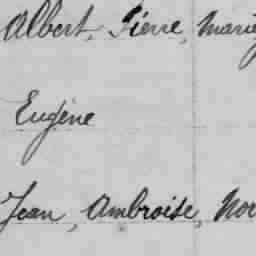 Albert, Pierre, Marie
Eugène
Jean, Ambroise, Nor